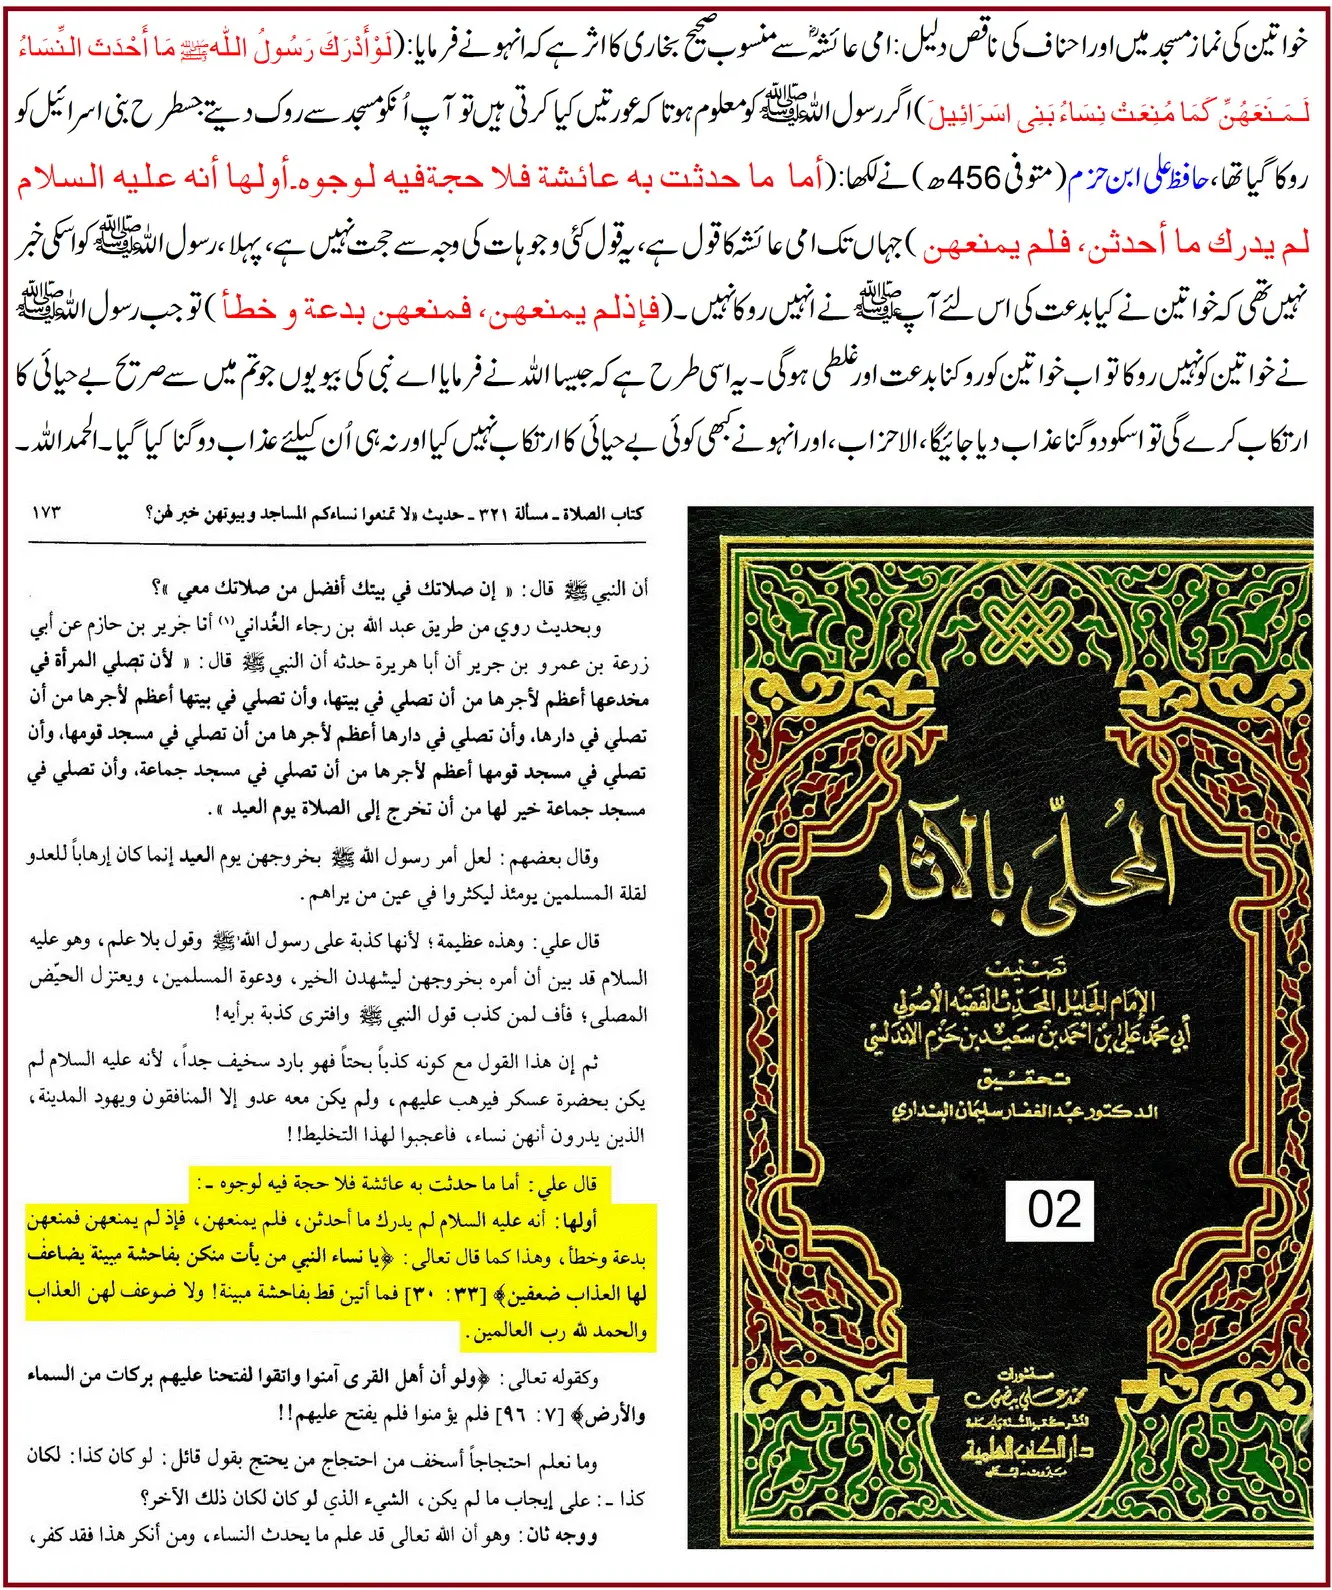 خواتین کی نماز مسجد میں اور احناف کی ناقص دلیل: امی عائشہؓ سے منسوب صحیح بخاری کا اثر ہے کہ انہو نے فرمایا: (لَوْ أَدْرَكَ رَسُولُ اللهِ ﷺ مَا أَحْدَثَ النِّسَاءُ
لَمَنَعَهُنَّ كَمَا مُنِعَتْ نِسَاءُ بَنِي اسَرَائِيلَ) اگر رسول اللہ ﷺ کو معلوم ہوتا کہ عورتیں کیا کرتی ہیں تو آپ اُنکو مسجد سے روک دیتے جسطرح بنی اسرائیل کو
روکا گیا تھا، حافظ علی ابن حزم (متوفی 456ھ) نے لکھا: (أما ما حدثت به عائشة فلا حجة فيه لوجوه۔ أولها أنه عليه السلام
لم يدرك ما أحدثن، فلم يمنعهن) جہاں تک امی عائشہ کا قول ہے، یہ قول کئی وجوہات کی وجہ سے حجت نہیں ہے، پہلا، رسول اللہ ﷺ کو اسکی خبر
نہیں تھی کہ خواتین نے کیا بدعت کی اس لئے آپ ﷺ نے انہیں روکا نہیں۔ (فإذلم يمنعهن، فمنعهن بدعة و خطأ) تو جب رسول اللہ ﷺ
نے خواتین کو نہیں روکا تو اب خواتین کو روکنا بدعت اور غلطی ہوگی۔ یہ اسی طرح ہے کہ جیسا اللہ نے فرمایا اے نبی کی بیویوں جو تم میں سے صریح بے حیائی کا
ارتکاب کرے گی تو اسکو دوگنا عذاب دیا جائیگا، الاحزاب، اور انہو نے کبھی کوئی بے حیائی کا ارتکاب نہیں کیا اور نہ ہی اُن کیلئے عذاب دوگنا کیا گیا۔ الحمد اللہ۔
كتاب الصلاة ـ مسألة ٣٢١ ـ حديث «لا تمنعوا نساءكم المساجد وبيوتهن خير لهن؟ ١٧٣
أن النبي ﷺ قال: « إن صلاتك في بيتك أفضل من صلاتك معي »؟
وبحديث روي من طريق عبد الله بن رجاء الغُداني(١) أنا جَرير بن حازم عن أبي
زرعة بن عمرو بن جرير أن أبا هريرة حدثه أن النبي ﷺ قال: « لأن تصلي المرأة في
مخدعها أعظم لأجرها من أن تصلي في بيتها، وأن تصلي في بيتها أعظم لأجرها من أن
تصلي في دارها، وأن تصلي في دارها أعظم لأجرها من أن تصلي في مسجد قومها، وأن
تصلي في مسجد قومها أعظم لأجرها من أن تصلي في مسجد جماعة، وأن تصلي في
مسجد جماعة خير لها من أن تخرج إلى الصلاة يوم العيد ».
وقال بعضهم: لعل أمر رسول الله ﷺ بخروجهن يوم العيد إنما كان إرهاباً للعدو
لقلة المسلمين يومئذ ليكثروا في عين من يراهم.
قال علي: وهذه عظيمة؛ لأنها كذبة على رسول الله ﷺ وقول بلا علم، وهو عليه
السلام قد بين أن أمره بخروجهن ليشهدن الخير، ودعوة المسلمين، ويعتزل الحيّض
المصلى؛ فأف لمن كذب قول النبي ﷺ وافترى كذبة برأيه!
ثم إن هذا القول مع كونه كذباً بحتاً فهو بارد سخيف جداً، لأنه عليه السلام لم
يكن بحضرة عسكر فيرهب عليهم، ولم يكن معه عدو إلا المنافقون ويهود المدينة،
الذين يدرون أنهن نساء، فاعجبوا لهذا التخليط!!
قال علي: أما ما حدثت به عائشة فلا حجة فيه لوجوه ـ:
أولها: أنه عليه السلام لم يدرك ما أحدثن، فلم يمنعهن، فإذ لم يمنعهن فمنعهن
بدعة وخطأ، وهذا كما قال تعالى: ﴿يا نساء النبي من يأت منكن بفاحشة مبينة يضاعف
لها العذاب ضعفين﴾ [٣٣: ٣٠] فما أتين قط بفاحشة مبينة! ولا ضوعف لهن العذاب
والحمد لله رب العالمين.
وكقوله تعالى: ﴿ولو أن أهل القرى آمنوا واتقوا لفتحنا عليهم بركات من السماء
والأرض﴾ [٧: ٩٦] فلم يؤمنوا فلم يفتح عليهم!!
وما نعلم احتجاجاً أسخف من احتجاج من يحتج بقول قائل: لو كان كذا: لكان
كذا ـ: على إيجاب ما لم يكن، الشيء الذي لو كان لكان ذلك الآخر؟
ووجه ثان: وهو أن الله تعالى قد علم ما يحدث النساء، ومن أنكر هذا فقد كفر،
المحلّى بالآثار
تصنيف
الإمام الجليل المحدث الفقيه الأصولي
أبي محمد علي بن أحمد بن سعيد بن حزم الأندلسي
تحقيق
الدكتور عبد الغفار سليمان البنداري
02
منشورات
محمد علي بيضون
لنشر كتب السنة والجماعة
دار الكتب العلمية
بيروت - لبنان